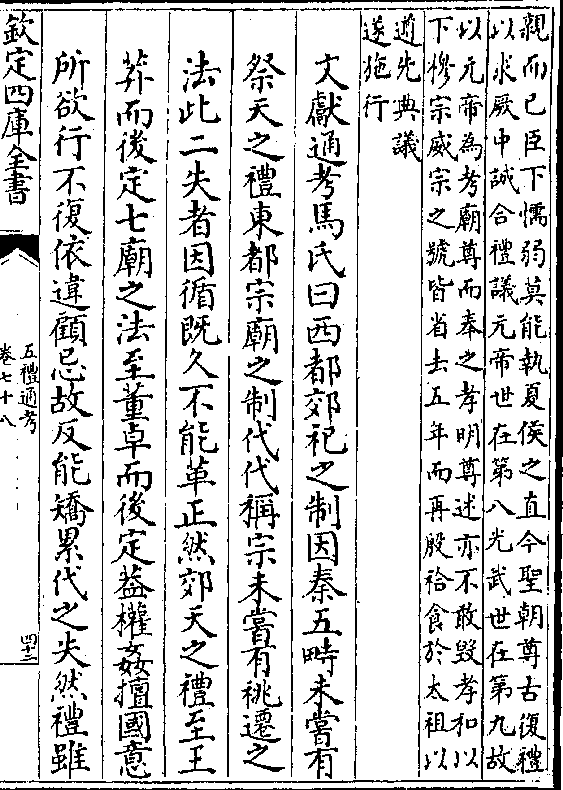 親而已臣下懦弱莫能執夏侯之直今聖朝尊古復禮
以求厥中誠合禮議元帝世在第八光武世在第九故
以元帝為考廟尊而奉之孝明尊述亦不敢毀孝和以
下穆宗威宗之號皆省去五年而再殷祫食於太祖以
遵先典議
遂施行
文獻通考馬氏曰西都郊祀之制因秦五畤未嘗有
祭天之禮東都宗廟之制代代稱宗未嘗有祧遷之
法此二失者因循既久不能革正然郊天之禮至王
莽而後定七廟之法至董卓而後定葢權姦擅國意
所欲行不復依違顧忌故反能矯累代之失然禮雖
欽定四庫全書
五禮通考
卷七十八
四十二